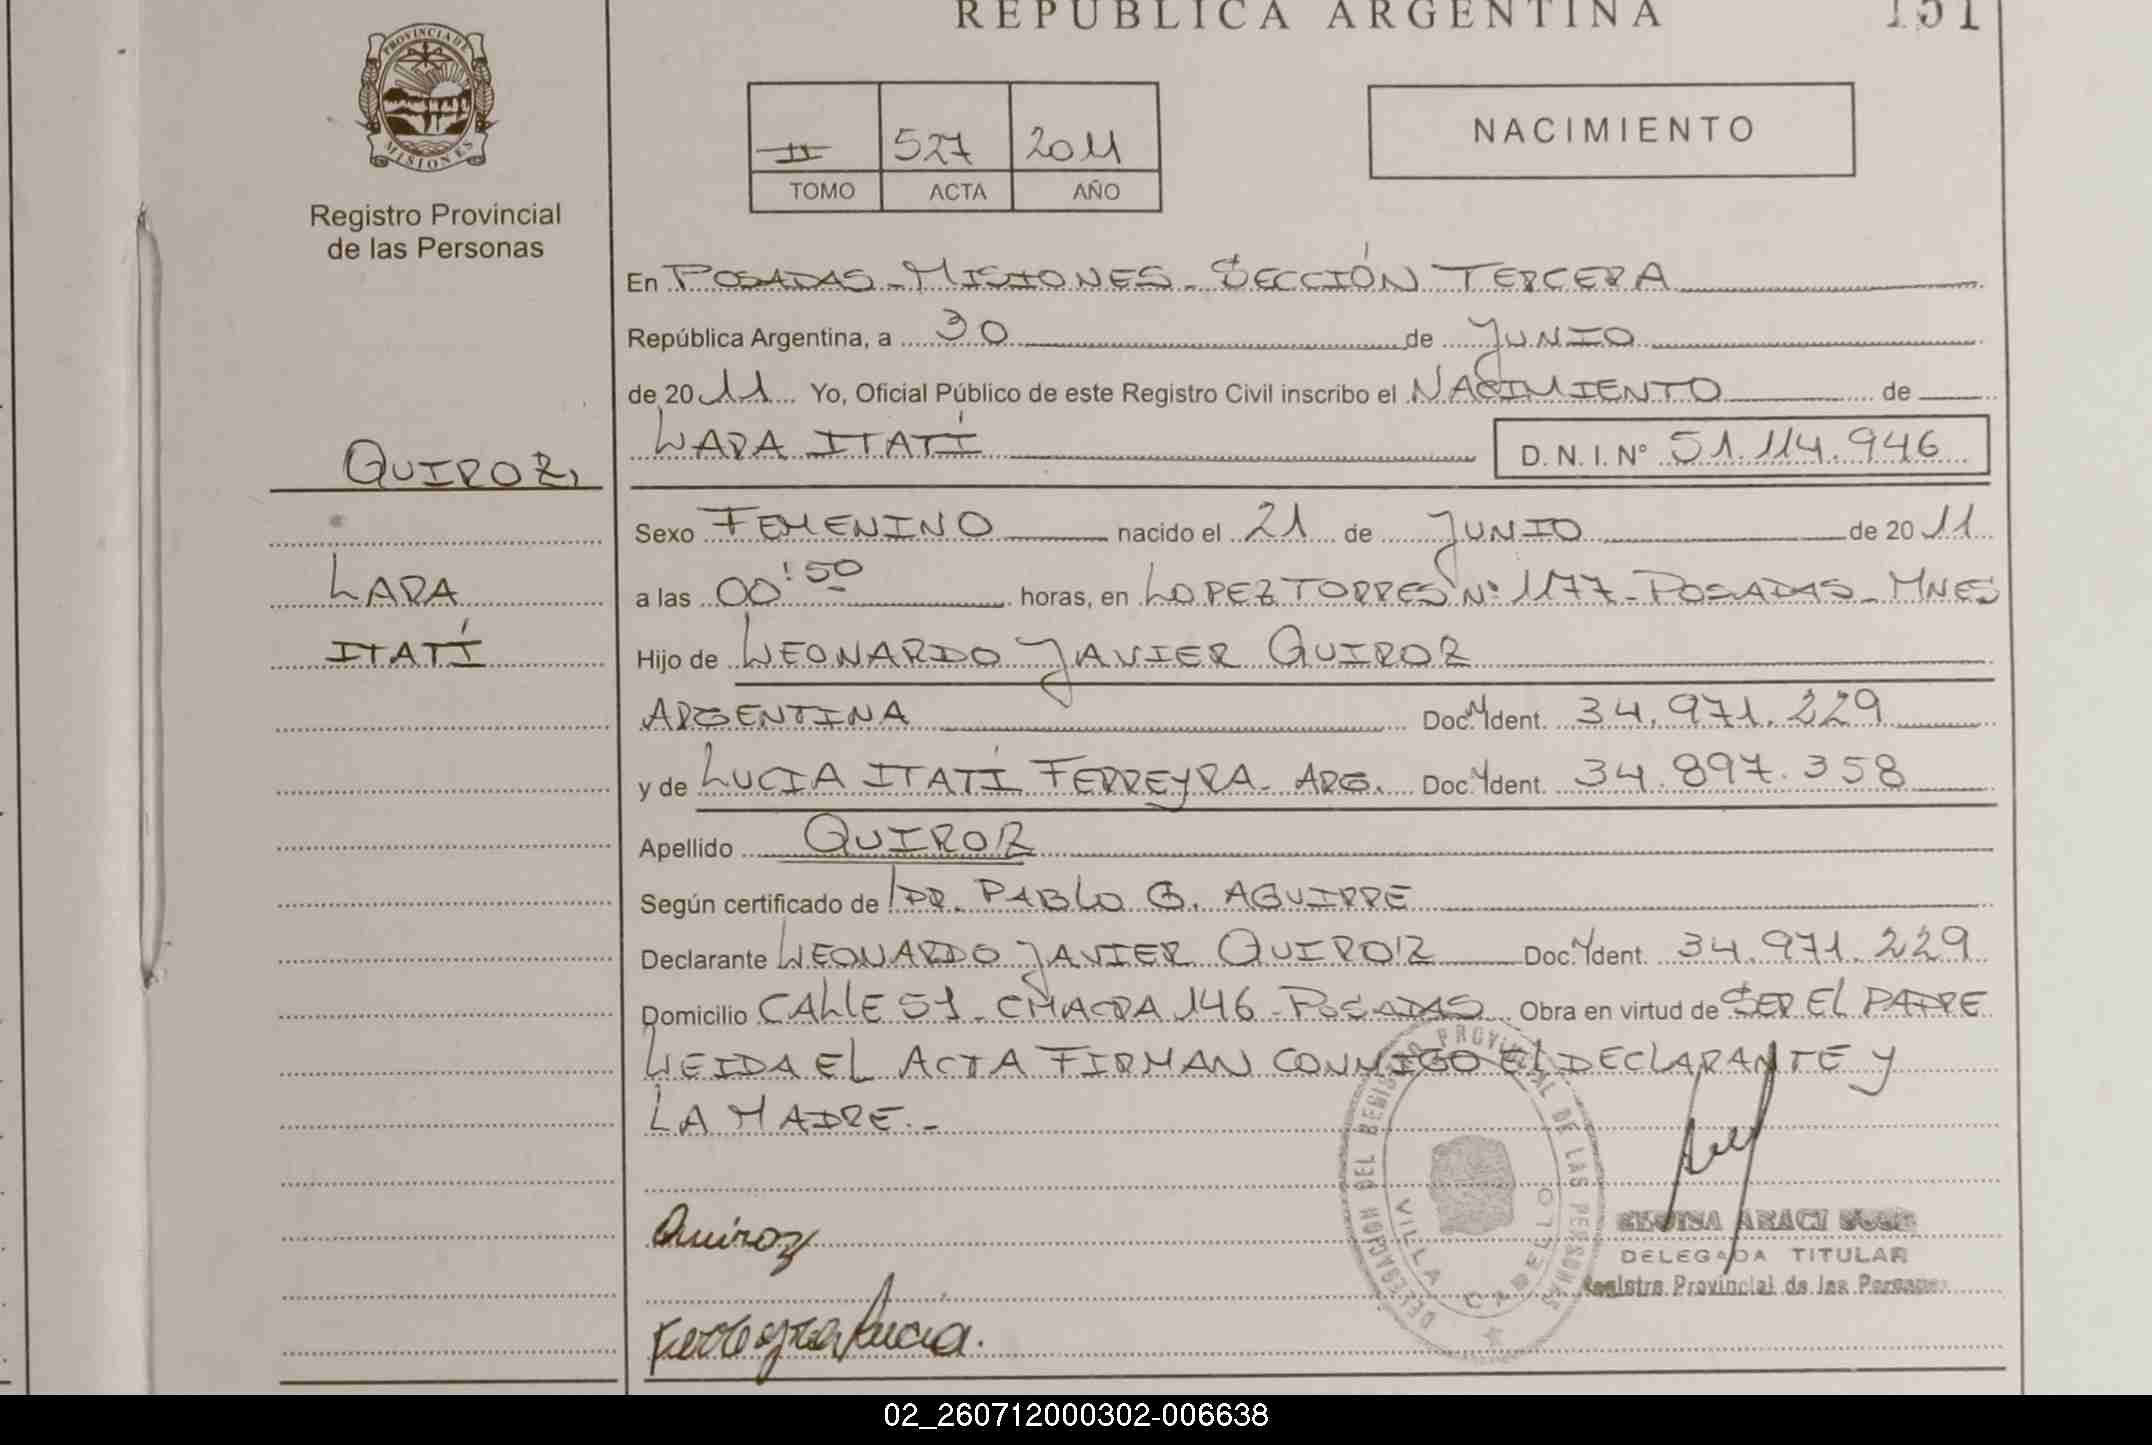 REPUBLICA ARGENTINA
151
PROVINCIA DE
MISIONES
Registro Provincial
de las Personas
II 527 2011
TOMO ACTA AÑO
NACIMIENTO
En POSADAS - MISIONES - SECCIÓN TERCERA
República Argentina, a 30 de JUNIO
de 2011 Yo, Oficial Público de este Registro Civil inscribo el NACIMIENTO de
LARA ITATÍ D.N.I.Nº 51.114.946
QUIROZ,
LARA
ITATÍ
Sexo FEMENINO nacido el 21 de JUNIO de 2011
a las 00:50 horas, en LOPEZ TORRES Nº 1177 - POSADAS - MNES
Hijo de LEONARDO JAVIER QUIROZ
ARGENTINA Doc. Ident. 34.971.229
y de LUCIA ITATÍ FERREYRA - ARG. Doc. Ident. 34.897.358
Apellido QUIROZ
Según certificado de DR. PABLO G. AGUIRRE
Declarante LEONARDO JAVIER QUIROZ Doc. Ident. 34.971.229
Domicilio CALLE 51 - CHACRA 146 - POSADAS Obra en virtud de SER EL PADRE
LEIDA EL ACTA FIRMAN CONMIGO EL DECLARANTE Y
LA MADRE.-
DELEGACION DEL REGISTRO PROVINCIAL DE LAS PERSONAS
VILLA CABELLO
Quiroz
ARACI
DELEGADA TITULAR
Registro Provincial de las Personas
Ferreyra Lucia.
02_260712000302-006638